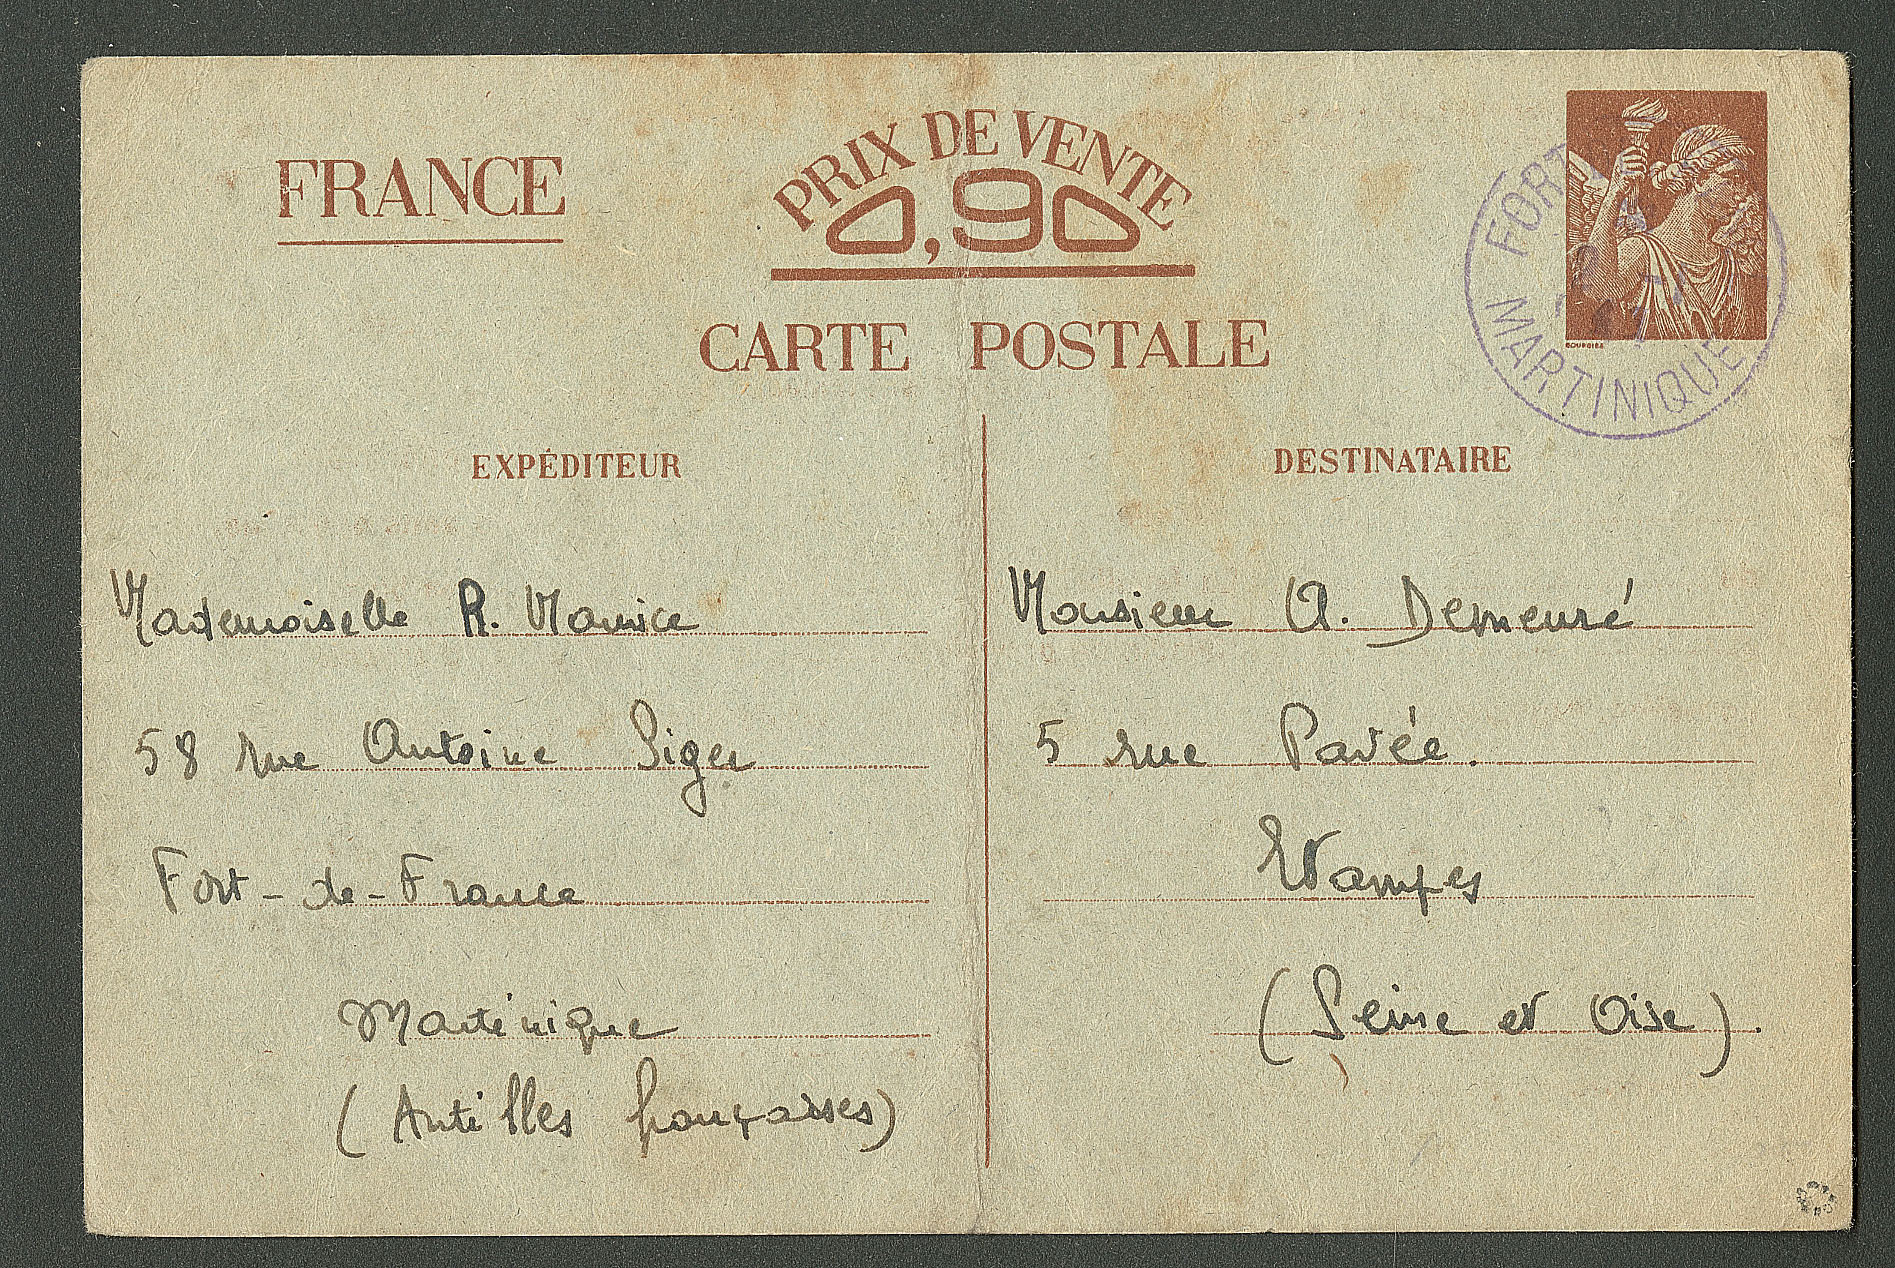 FRANCE
PRIX DE VENTE
0,90
CARTE POSTALE
FORT
MARTINIQUE
EXPÉDITEUR
Mademoiselle R. Maurice
58 rue Antoine Siger
Fort-de-France
Martinique
(Antilles françaises)
DESTINATAIRE
Monsieur A. Demeuré
5 rue Pavée.
Etampes
(Seine et Oise).